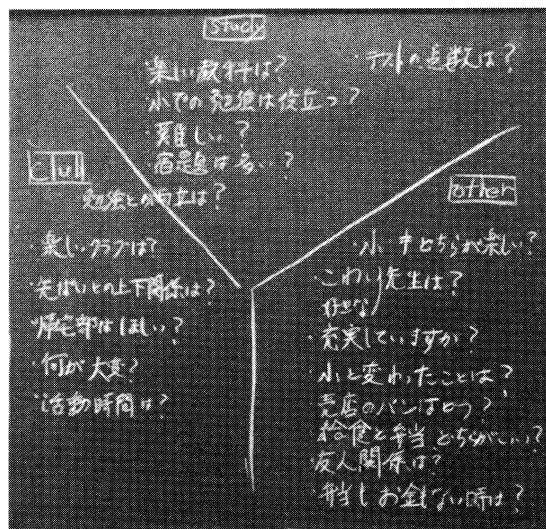 study
楽しい教科は?
・テストの点数は?
小での勉強は役立つ?
・難しい?
・宿題は多い?
club
勉強との両立は?
・楽しいクラブは?
・先ぱいとの上下関係は?
・帰宅部はほしい?
・何が大変?
・活動時間は?
other
・小・中どちらが楽しい?
・こわい先生は?
好きな
・充実していますか?
・小と変わったことは?
売店のパンはどう?
給食と弁当どちらがいい?
友人関係は?
・弁当もお金もない時は?